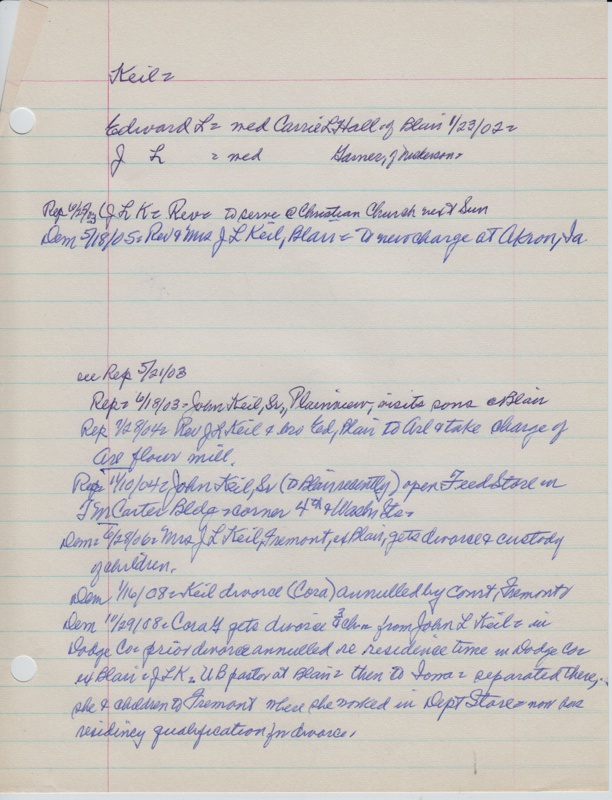 Keil =
Edward L = med Carrie L Hall of Blair 1/23/02 =
J L = med Garner, of Nickerson =
Rep (J L K = Rev = to serve @ Christian Church next Sun
Dem 5/18/05 = Rev & Mrs J L Keil, Blair = to new charge at Akron, Ia
see Rep 5/21/03
Rep = 6/18/03 = John Keil, Sr, Plainview, visits sons @ Blair
Rep 9/28/04 = Rev J L Keil & bro Ed, Blair to Arl & take charge of
Arl flour mill.
Rep 11/10/04 = John Keil, Sr (to Blair recently) open Feed Store in
T M Carter Bldg = corner 4th & Wash Sts.
Dem = 6/28/06 = Mrs J L Keil, Fremont, ex Blair, gets divorce & custody
of children.
Dem 1/16/08 = Keil divorce (Cora) annulled by court, Fremont
Dem 10/29/08 = Cora gets divorce 3 chn from John L Keil = in
Dodge Co = prior divorce annulled re residence time in Dodge Co =
ex Blair = J L K = U B pastor at Blair = then to Iowa = separated there,
she & children to Fremont where she worked in Dept Store = now has
residency qualification for divorce.